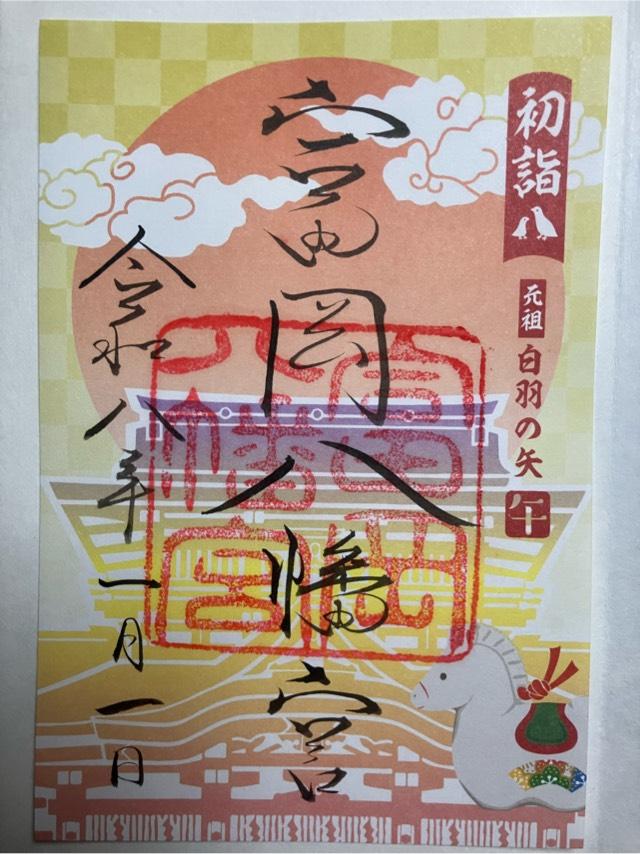 初詣
元祖
白羽の矢
午
富岡八幡宮
令和八年一月一日
富岡八幡宮